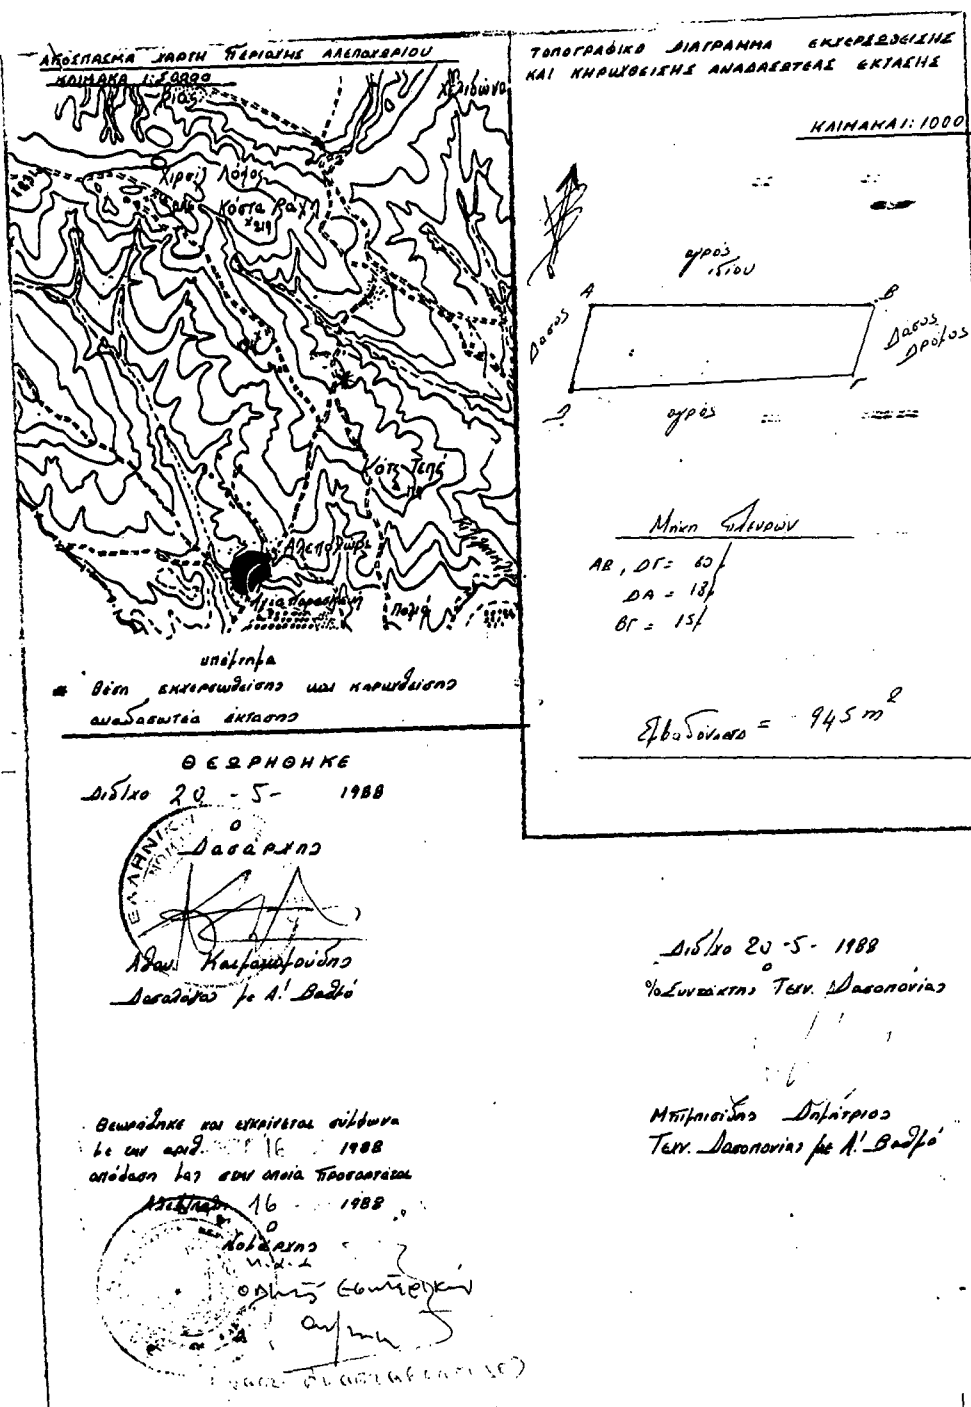 ΑΠΟΣΠΑΣΜΑ ΧΑΡΤΗ ΠΕΡΙΟΧΗΣ ΑΛΕΠΟΧΩΡΙΟΥ
ΚΛΙΜΑΚΑ 1:50000
Χελιδώνα
Λόφος
Κώστα Ράχη
x219
Κότς Τεπέ
Αλεποχώρι
Αγία Παρασκευή
Παλιά
υπόμνημα
* θέση εκχερσωθείσης και κηρυχθείσης
αναδασωτέα έκτασης
ΘΕΩΡΗΘΗΚΕ
Διδ/χο 20 - 5 - 1988
Ο
Δασάρχης
ΕΛΛΗΝΙΚΗ
Αθαν. Καϊμακαμούδης
Δασολόγος με Α! Βαθμό
Θεωρήθηκε και εγκρίνεται σύμφωνα
με την αριθ. 16 1988
απόφαση μας στην οποία προσαρτάται
Αλεξ/πολη 16 1988
Ο
Νομάρχης
ΤΟΠΟΓΡΑΦΙΚΟ ΔΙΑΓΡΑΜΜΑ ΕΚΧΕΡΣΩΘΕΙΣΗΣ
ΚΑΙ ΚΗΡΥΧΘΕΙΣΗΣ ΑΝΑΔΑΣΩΤΕΑΣ ΕΚΤΑΣΗΣ
ΚΛΙΜΑΚΑ 1:1000
αγρός
ιδίου
Α
Β
Δάσος
Δάσος
Δρόμος
Δ
Γ
αγρός
Μήκη πλευρών
ΑΒ, ΔΓ = 60μ
ΔΑ = 18μ
ΒΓ = 15μ
Εμβαδόν = 945 m²
Διδ/χο 20 - 5 - 1988
Ο
Συντάκτης Τεχν. Δασοπονίας
Δημήτριος
Τεχν. Δασοπονίας με Α! Βαθμό